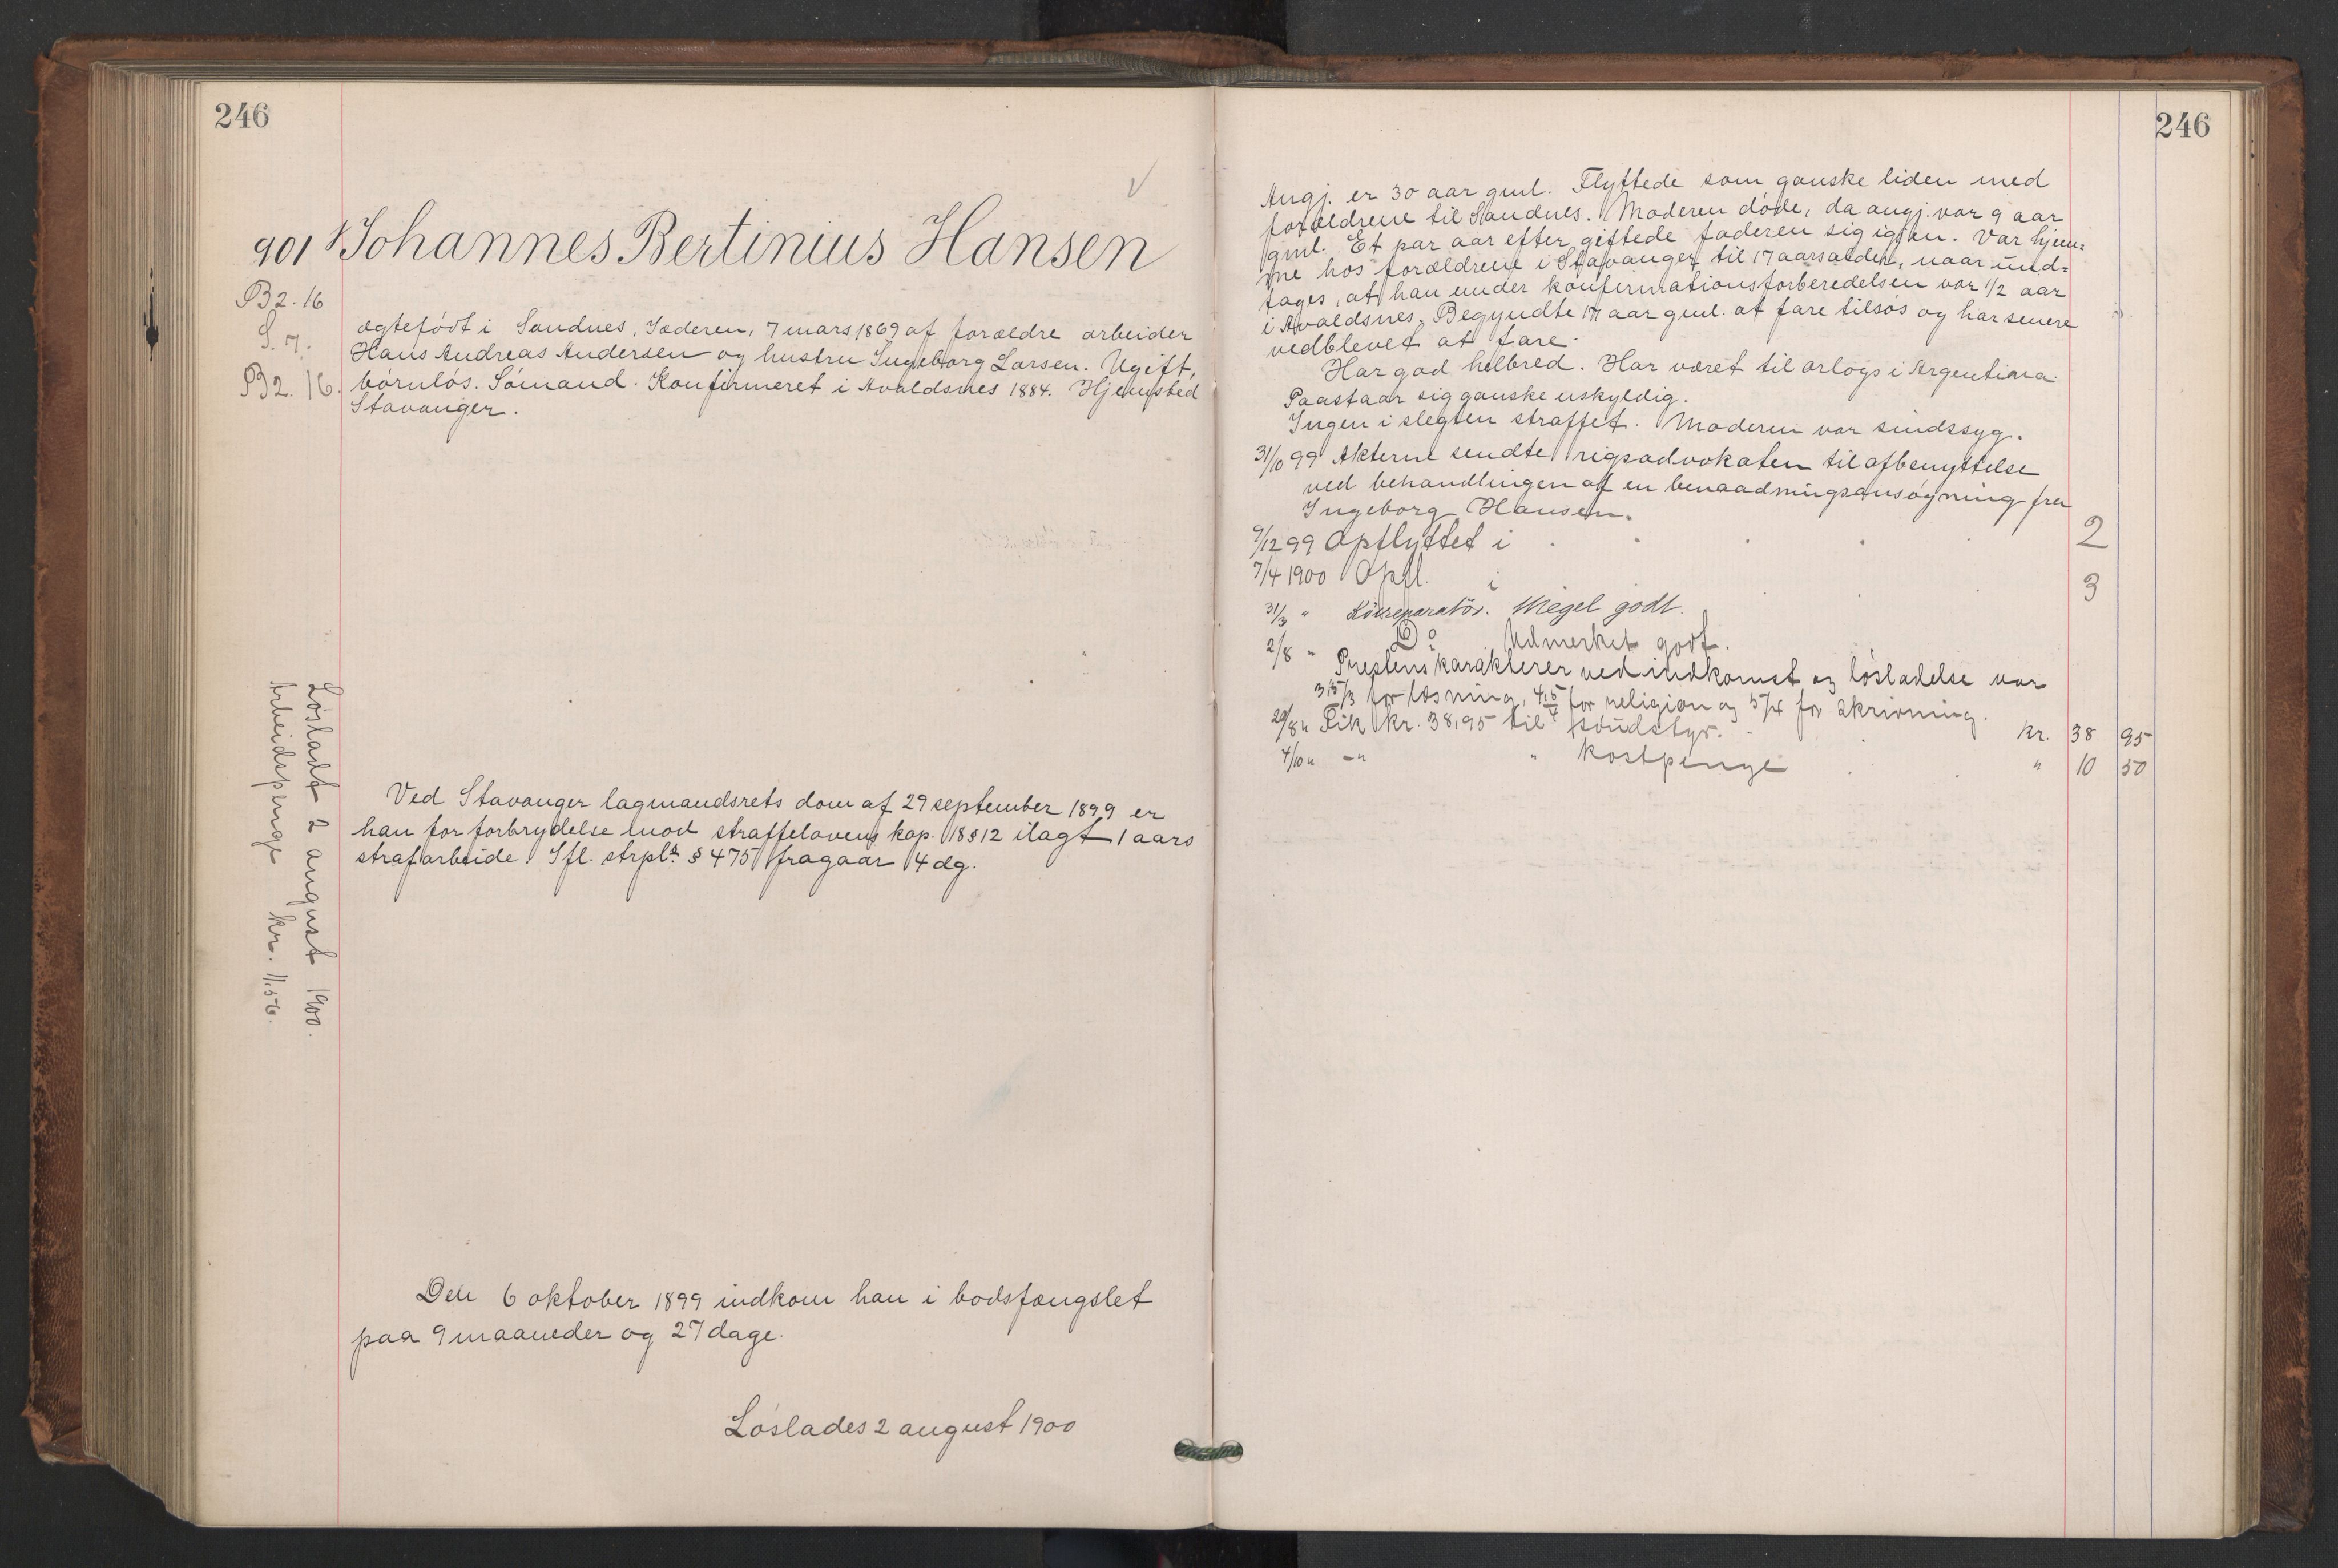 246
901 Johannes Bertinius Hansen
B2.16
S. 7.
B2. 16.
ægtefödt i Sandnes, Jæderen, 7 mars 1869 af forældre arbeider
Hans Andreas Andersen og hustru Ingeborg Larsen. Ugift,
börnlös. Sömand. Konfirmeret i Avaldsnes 1884. Hjemsted
Stavanger.
Løsladt 2 august 1900.
Arbeidspenge kr. 11.56.
Ved Stavanger lagmandsrets dom af 29 september 1899 er
han for forbrydelse mod straffelovens kap. 18 § 12 ilagt 1 aars
strafarbeide. Ifl. strpl. § 475 fragaar 4 dg.
Den 6 oktober 1899 indkom han i bodsfængslet
paa 9 maaneder og 27 dage.
Löslades 2 august 1900
246
Angj. er 30 aar gml. Flyttede som ganske liden med
forældrene til Sandnes. Moderen döde, da angj. var 9 aar
gml. Et par aar efter giftede faderen sig igjen. Var hjem=
me hos forældrene i Stavanger til 17 aarsalder, naar und=
tages, at han under konfirmationsforberedelsen var 1/2 aar
i Avaldsnes. Begyndte 17 aar gml. at fare tilsös og har senere
vedblevet at fare.
Har god helbred. Har været til orlogs i Argentina.
Paastaar sig ganske uskyldig.
Ingen i slegten straffet. Moderen var sindssyg.
31/10 99 Akterne sendte rigsadvokaten til afbenyttelse
ved behandlingen af en benaadningsansögning fra
Ingeborg Hansen.
9/12 99 Opflyttet i . . . . 2
7/4 1900 Opfl. i 3
31/3 " Meget godt.
2/8 " Do Udmerket godt.
Prestens karakterer ved indkomst og lösladelse var
3,5/3 for læsning, 4,5/4 for religion og 5/4 for skrivning.
29/8 " Fik kr. 38,95 til . kr. 38 95
4/10 " -" " kostpenge . . " 10 50